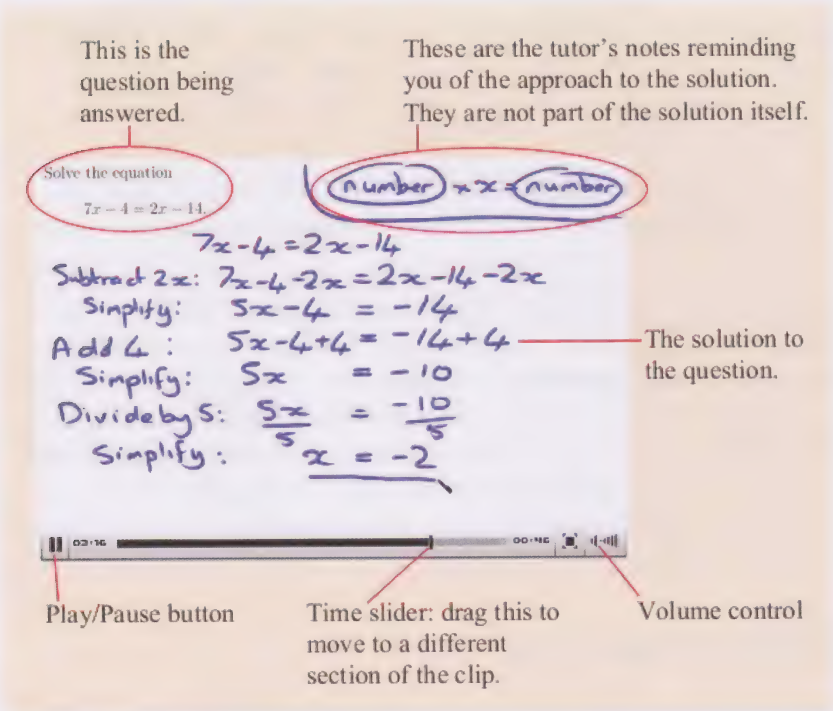 This is the
question being
answered.
These are the tutor's notes reminding
you of the approach to the solution.
They are not part of the solution itself.
Solve the equation
7x − 4 = 2x − 14.
number × x = number
7x-4=2x-14
Subtract 2x: 7x-4-2x=2x-14-2x
Simplify: 5x-4 = -14
Add 4: 5x-4+4 = -14+4
Simplify: 5x = -10
Divide by 5: 5x/5 = -10/5
Simplify: x = -2
The solution to
the question.
02:16
00:46
Play/Pause button
Time slider: drag this to
move to a different
section of the clip.
Volume control